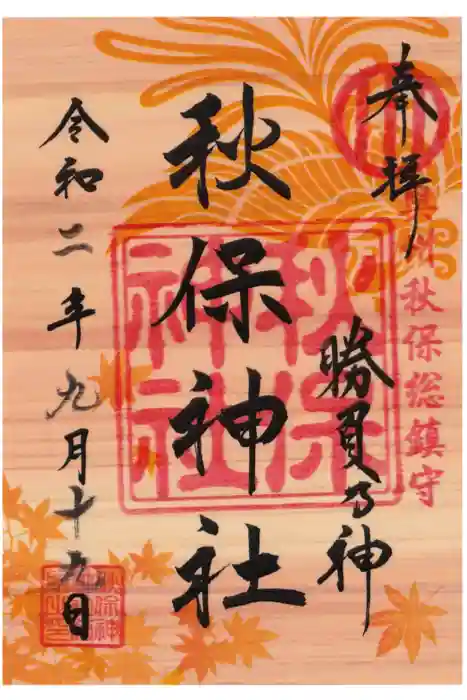 奉拝
秋保総鎮守
勝負乃神
秋保神社
秋保
神社
令和二年九月十九日